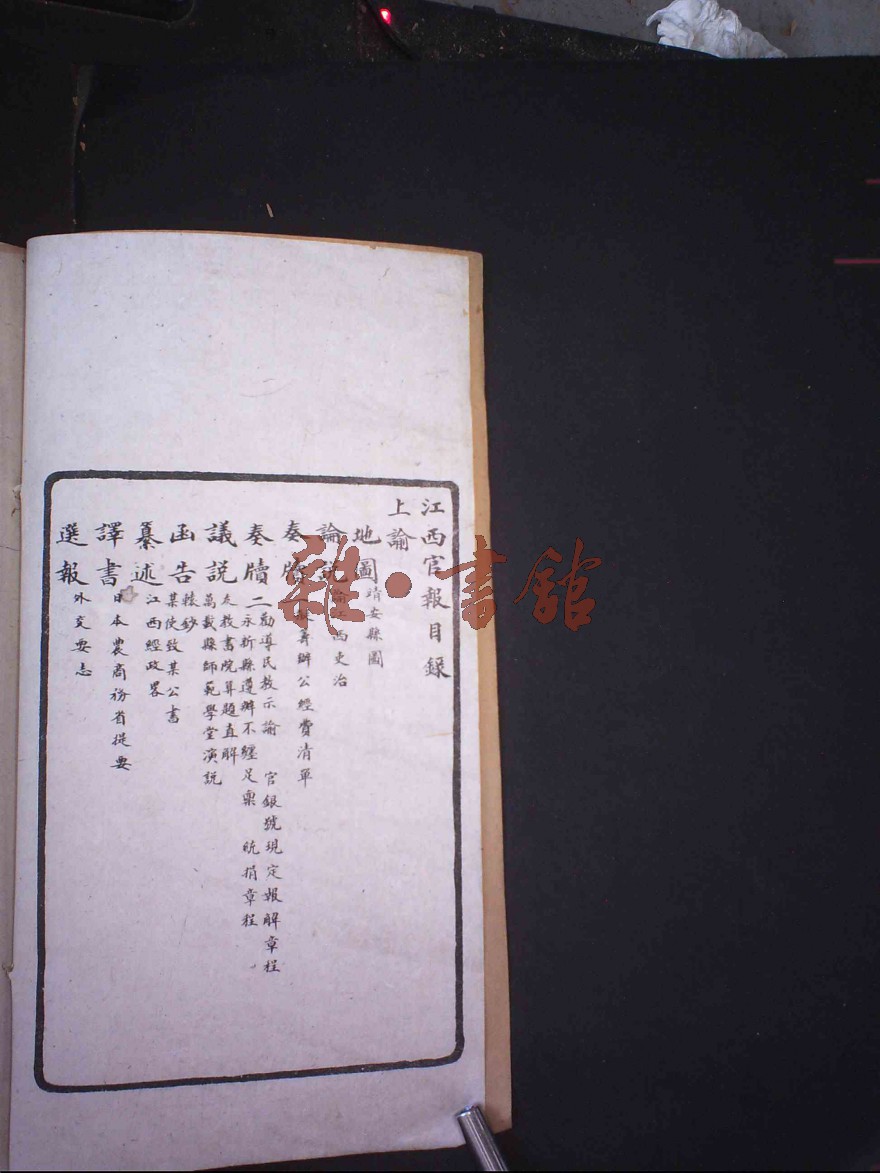 江西官報目錄
上諭
地圖 靖安縣圖
論說 論江西吏治
奏牘一 籌辦公經費清單
奏牘二 勸導民教示諭 官銀號現定報解章程
永新縣遵辦不纏足稟 統捐章程
議說 友教書院算題直解
萬載縣師範學堂演說
函告 轅鈔
某使致某公書
纂述 江西經政畧
譯書 日本農商務省提要
選報 外交要志
雜·書館